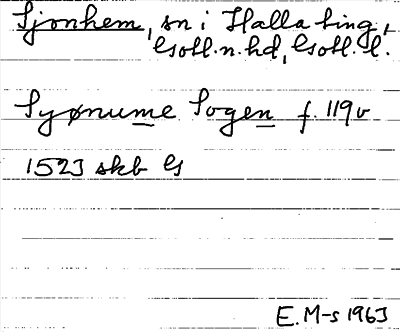 Sjonhem, sn i Halla ting,
Gotl. n. hd, Gotl. l.
Syønume Sogen f. 119v
1523 skb G
E. M-s 1963